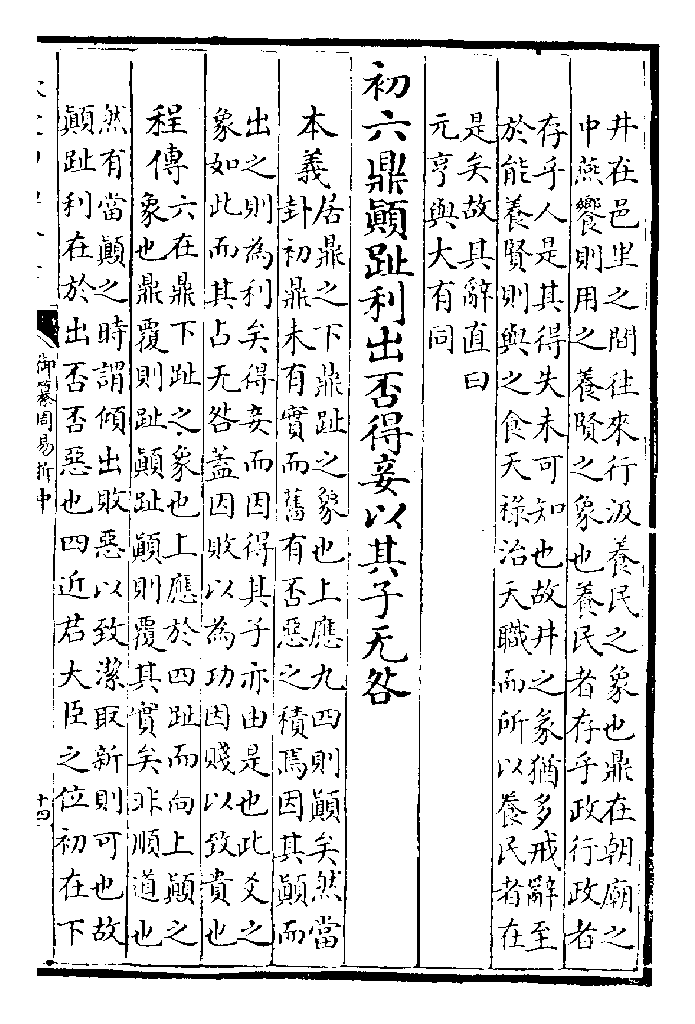 井在邑里之間往來行汲養民之象也鼎在朝廟之
中燕饗則用之養賢之象也養民者存乎政行政者
存乎人是其得失未可知也故井之象猶多戒辭至
於能養賢則與之食天祿治天職而所以養民者在
是矣故其辭直曰
元亨與大有同
初六鼎顚趾利出否得妾以其子无咎
本義居鼎之下鼎趾之象也上應九四則顚矣然當
卦初鼎未有實而舊有否惡之積焉因其顚而
出之則為利矣得妾而因得其子亦由是也此爻之
象如此而其占无咎蓋因敗以為功因賤以致貴也
程傳六在鼎下趾之象也上應於四趾而向上顚之
象也鼎覆則趾顚趾顚則覆其實矣非順道也
然有當顚之時謂傾出敗惡以致潔取新則可也故
顚趾利在於出否否惡也四近君大臣之位初在下
御纂周易折中
十四